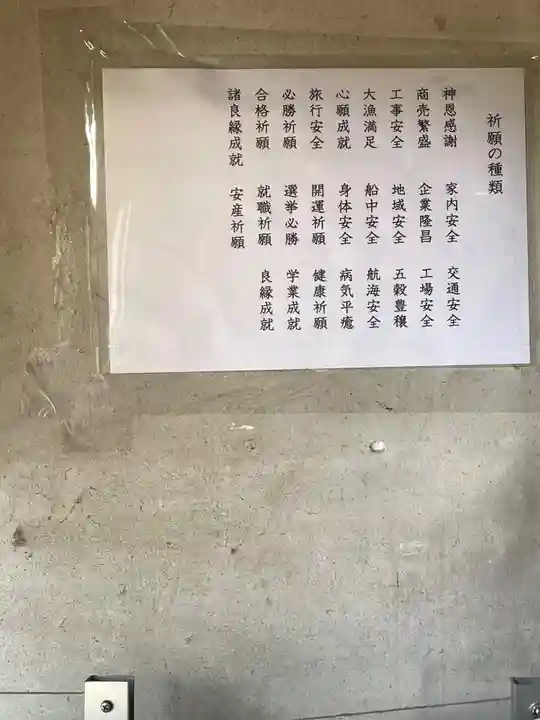 祈願の種類
神恩感謝 家内安全 交通安全
商売繁盛 企業隆昌 工場安全
工事安全 地域安全 五穀豊穣
大漁満足 船中安全 航海安全
心願成就 身体安全 病気平癒
旅行安全 開運祈願 健康祈願
必勝祈願 選挙必勝 学業成就
合格祈願 就職祈願 良縁成就
諸良縁成就 安産祈願